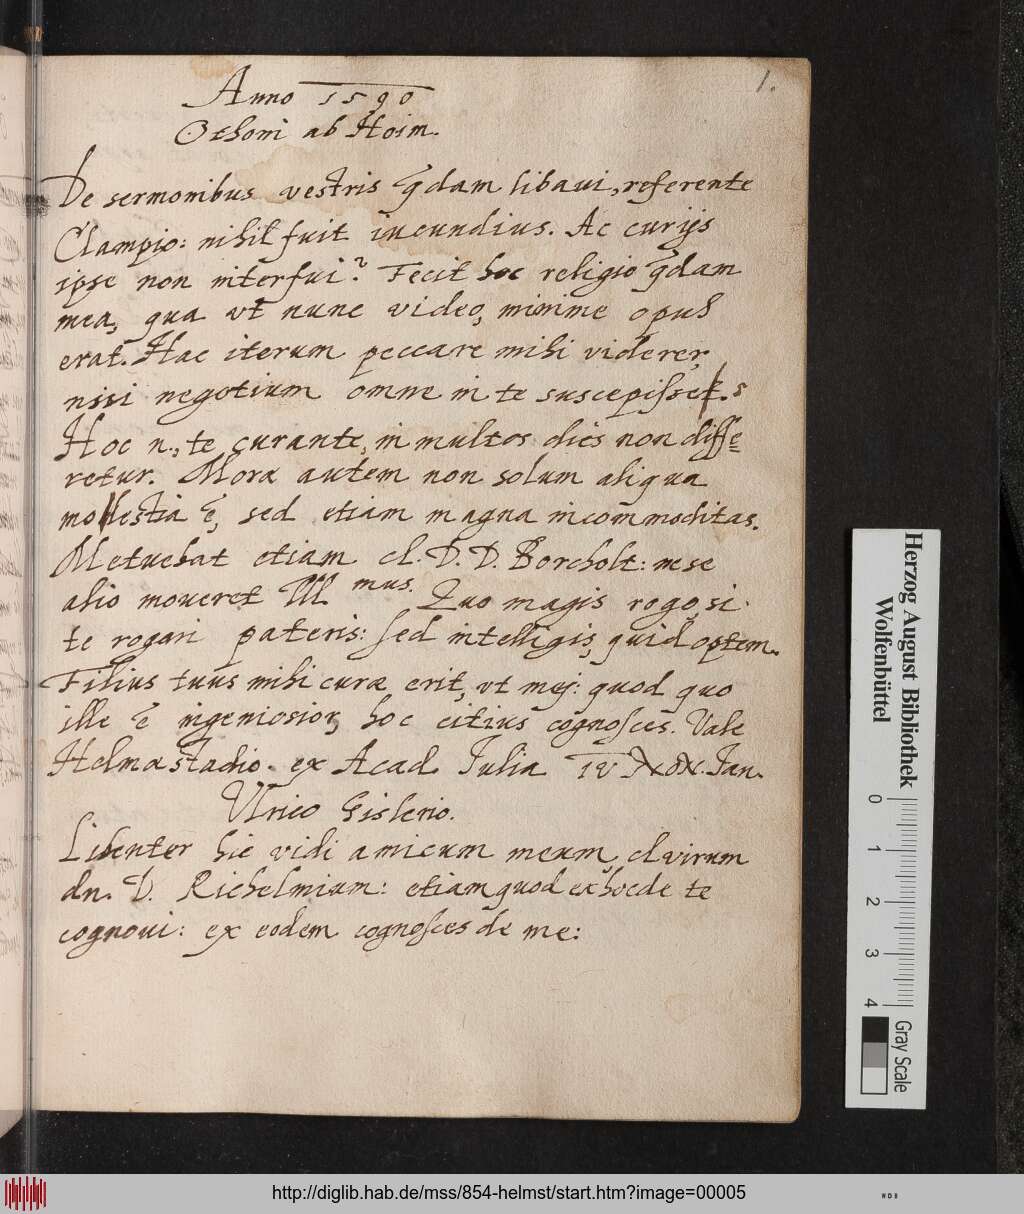 1.
Anno 1590
Othoni ab Hoim.
De sermonibus vestris qdam libaui, referente
Clampio: nihil fuit iucundius. Ac curijs
ipse non interfui? Fecit hoc religio qdam
mea, qua vt nunc video, minime opus
erat. Hac iterum peccare mihi viderer,
nisi negotium omne in te suscepisses.
Hoc n., te curante, in multos dies non diffe=
retur. Mora autem non solum aliqua
molestia ē, sed etiam magna incommoditas.
Metuebat etiam cl. D. D. Borcholt: ne se
alio moueret Illmus. Quo magis rogo, si
te rogari pateris: sed intelligis, quid optem.
Filius tuus mihi curæ erit, vt mej: quod quo
ille ē ingeniosior, hoc citius cognosces. Vale
Helmæstadio. ex Acad. Iulia IV NON. Jan.
Vlrico Gislerio.
Libenter hic vidi amicum meum, cl virum
dn. D. Richelmium: etiam quod ex hoc de te
cognoui: ex eodem cognosces de me:
Herzog August Bibliothek
Wolfenbüttel
0 1 2 3 4
Gray Scale
http://diglib.hab.de/mss/854-helmst/start.htm?image=00005
WDB